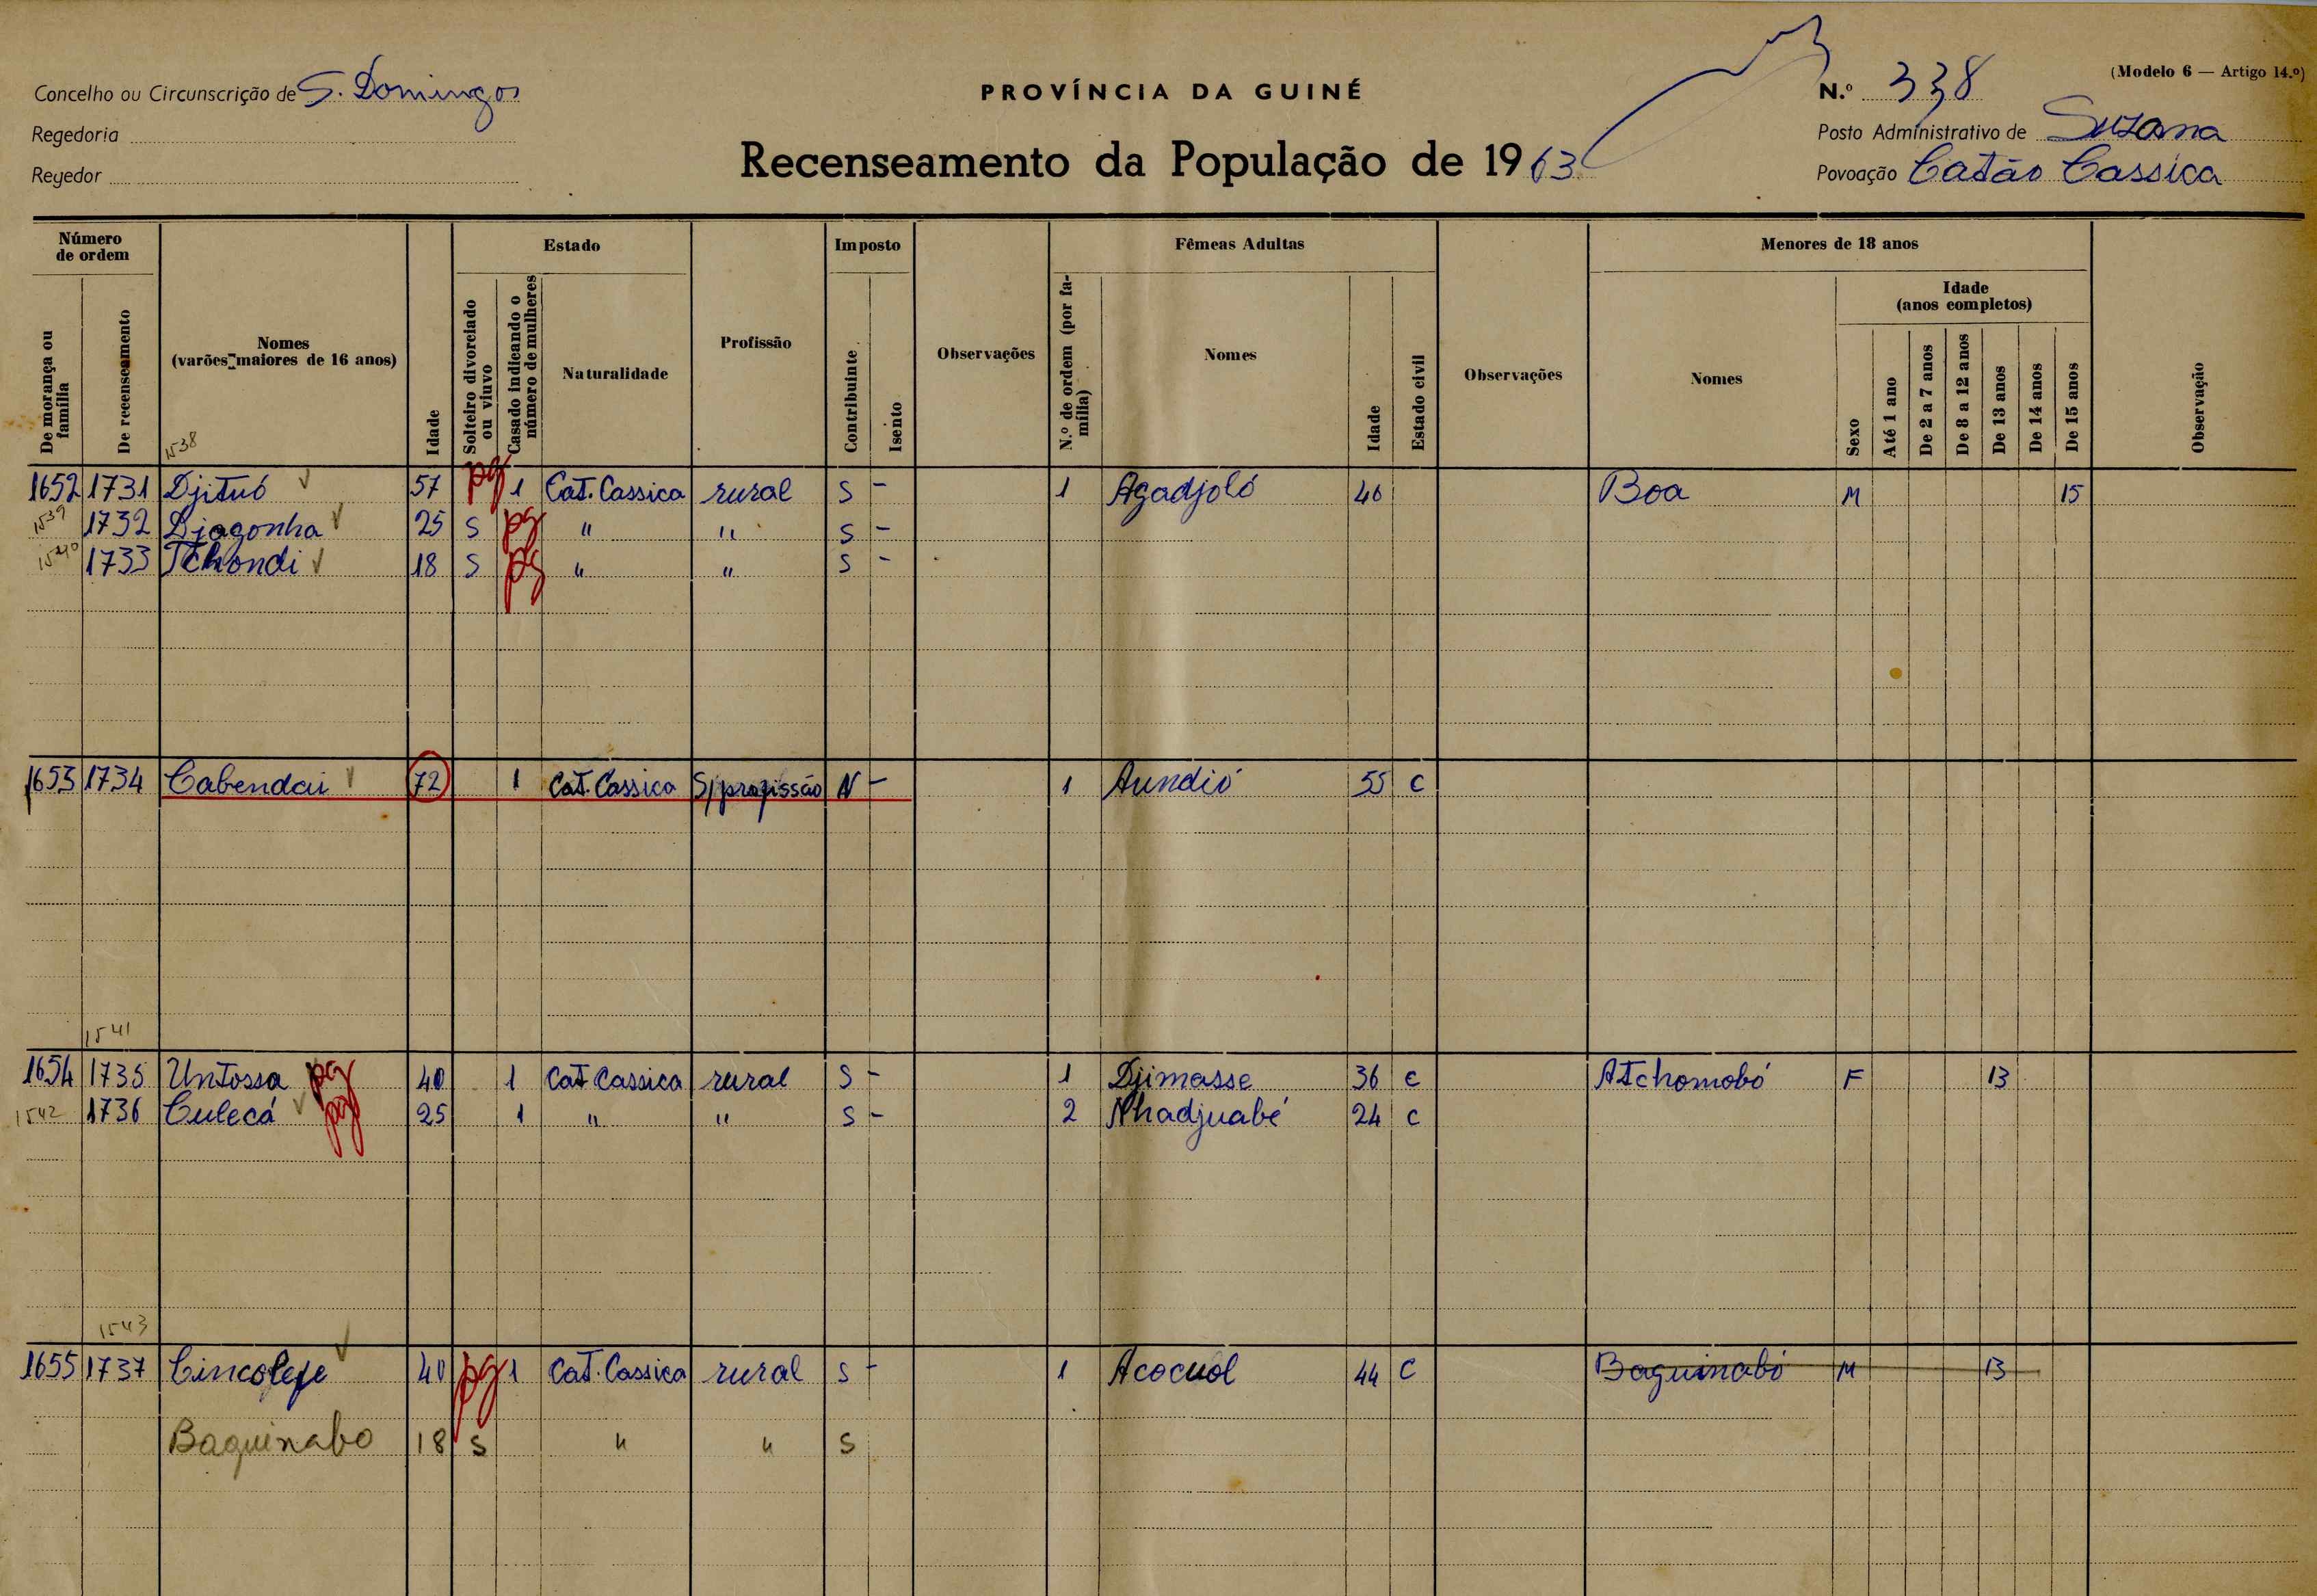 (Modelo 6 — Artigo 14.º)
Concelho ou Circunscrição de S. Domingos
PROVÍNCIA DA GUINÉ
N.º 338
Regedoria
Posto Administrativo de Suzana
Recenseamento da População de 1963
Regedor
Povoação Catão Cassica
Número de ordem
Estado
Imposto
Fêmeas Adultas
Menores de 18 anos
De morança ou família
De recenseamento
Nomes
(varões maiores de 16 anos)
Idade
Solteiro divorciado ou viuvo
Casado indicando o número de mulheres
Naturalidade
Profissão
Contribuinte
Isento
Observações
N.º de ordem (por família)
Nomes
Idade
Estado civil
Observações
Nomes
Sexo
Idade
(anos completos)
Até 1 ano
De 2 a 7 anos
De 8 a 12 anos
De 13 anos
De 14 anos
De 15 anos
Observação
1538
1652 1731 Djituó 57 pg 1 Cat. Cassica rural S - 1 Agadjoló 46 Boa M 15
1539 1732 Djagonha 25 S pg " " S -
1540 1733 Tchondi 18 S pg " " S -
1653 1734 Cabendai 72 1 Cat. Cassica S/profissão N - 1 Aundió 55 C
1541
1654 1735 Untossa pg 40 1 Cat Cassica rural S - 1 Djimasse 36 C Atchomobó F 13
1542 1736 Culecá pg 25 1 " " S - 2 Nhadjuabé 24 C
1543
1655 1737 Cincolefe 40 pg 1 Cat. Cassica rural S - 1 Acocuol 44 C Baguinabó M 13
Baguinabo 18 S " " S